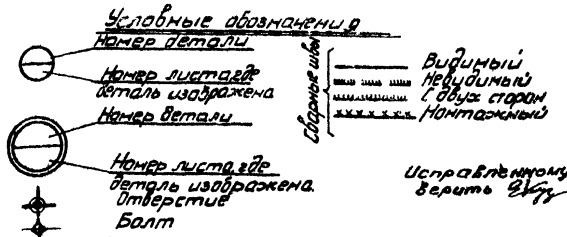 Условные обозначения
Номер детали
Номер листа, где
деталь изображена
Номер детали
Номер листа, где
деталь изображена.
Отверстие
Болт
Сварные швы
Видимый
Невидимый
С двух сторон
Монтажный
Исправленному
верить